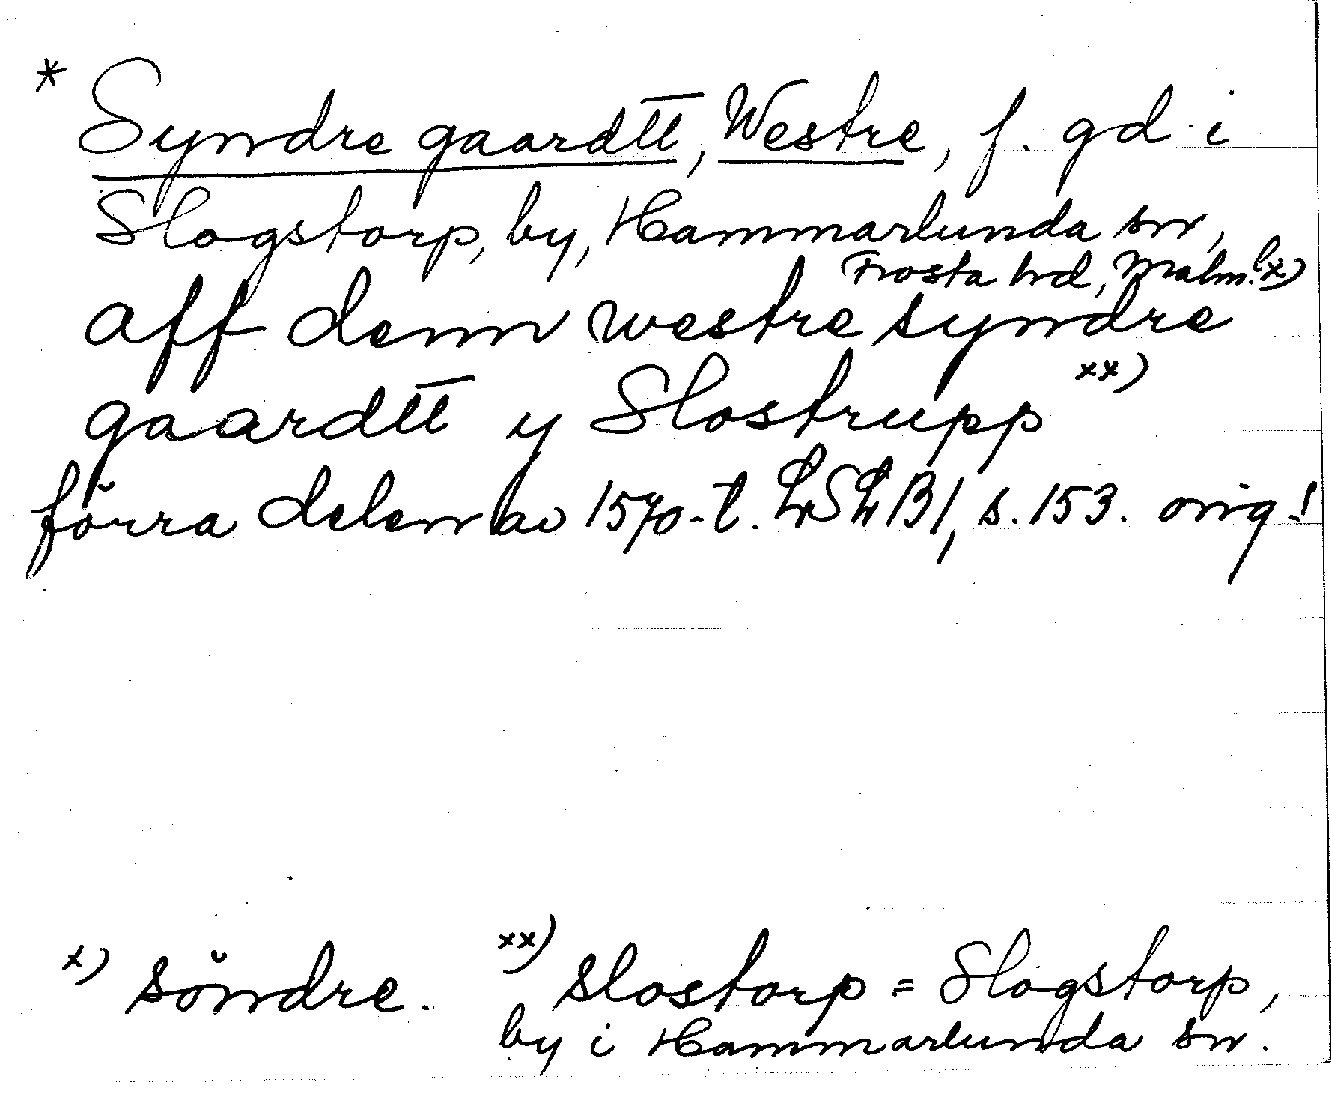 * Syndre gaardtt, Westre, f. gd i
Slogstorp, by, Hammarlunda sn,
Frosta hd, Malm. l. x)
aff denn westre syndre
gaardtt y Slostrupp xx)
förra delen av 1570-t. LSLB1, s. 153. orig!
x) söndre. xx) Slostorp = Slogstorp,
by i Hammarlunda sn.